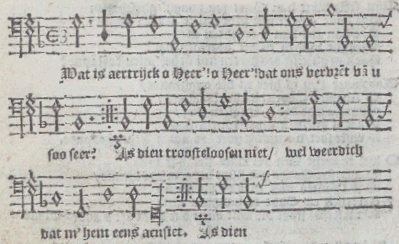 Wat is aertrijck o Heer'! o Heer'! dat ons vervrēt vā u
soo seer? Is dien troosteloosen niet/ wel weerdich
dat m' hem eens aensiet. Is dien